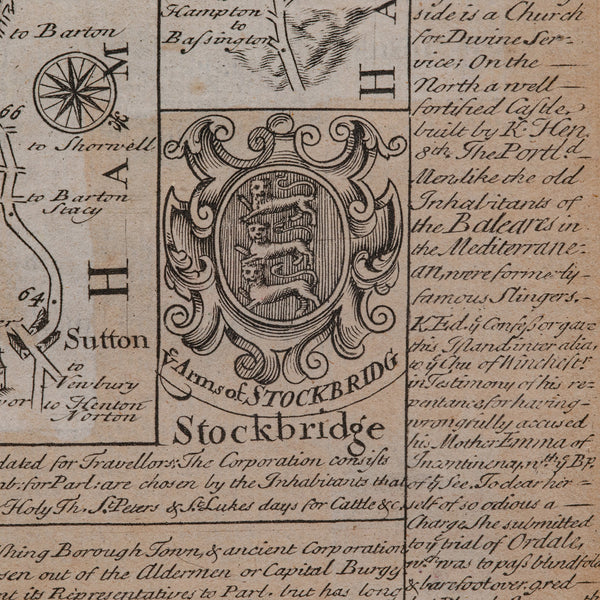 to Barton
66
to Shorwell
to Barton
Stacy
64
Sutton
to
Newbury
to Henton
Norton
HAM
Hampton
to
Bassington
HA
ye Arms of STOCKBRIDG
Stockbridge
dated for Travellors: The Corporation consists
for Parl: are chosen by the Inhabitants that
Holy Th. St. Peters & St. Lukes days for Cattle &c
shing Borough Town, & ancient Corporation
sen out of the Aldermen or Capital Burg
nt its Representatives to Parl. but has long
side is a Church
for Divine Ser-
vice; On the
North a well
fortified Castle,
built by K. Hen
8th. The Portl.d
Men, like the old
Inhabitants of
the Baleares in
the Mediterrane-
an, were formerly
famous Slingers.
K. Ed. ye Confessor gave
this Island inter alia
to ye Chu of Winchestr
in Testimony of his re-
pentance for having
wrongfully accused
his Mother Emma of
Incontinency, wth. ye Bp.
of ye See. To clear her
self of so odious a
Charge, She submitted
to ye trial of Ordale,
wch. was to pass blindfold
& barefoot over, 9 red